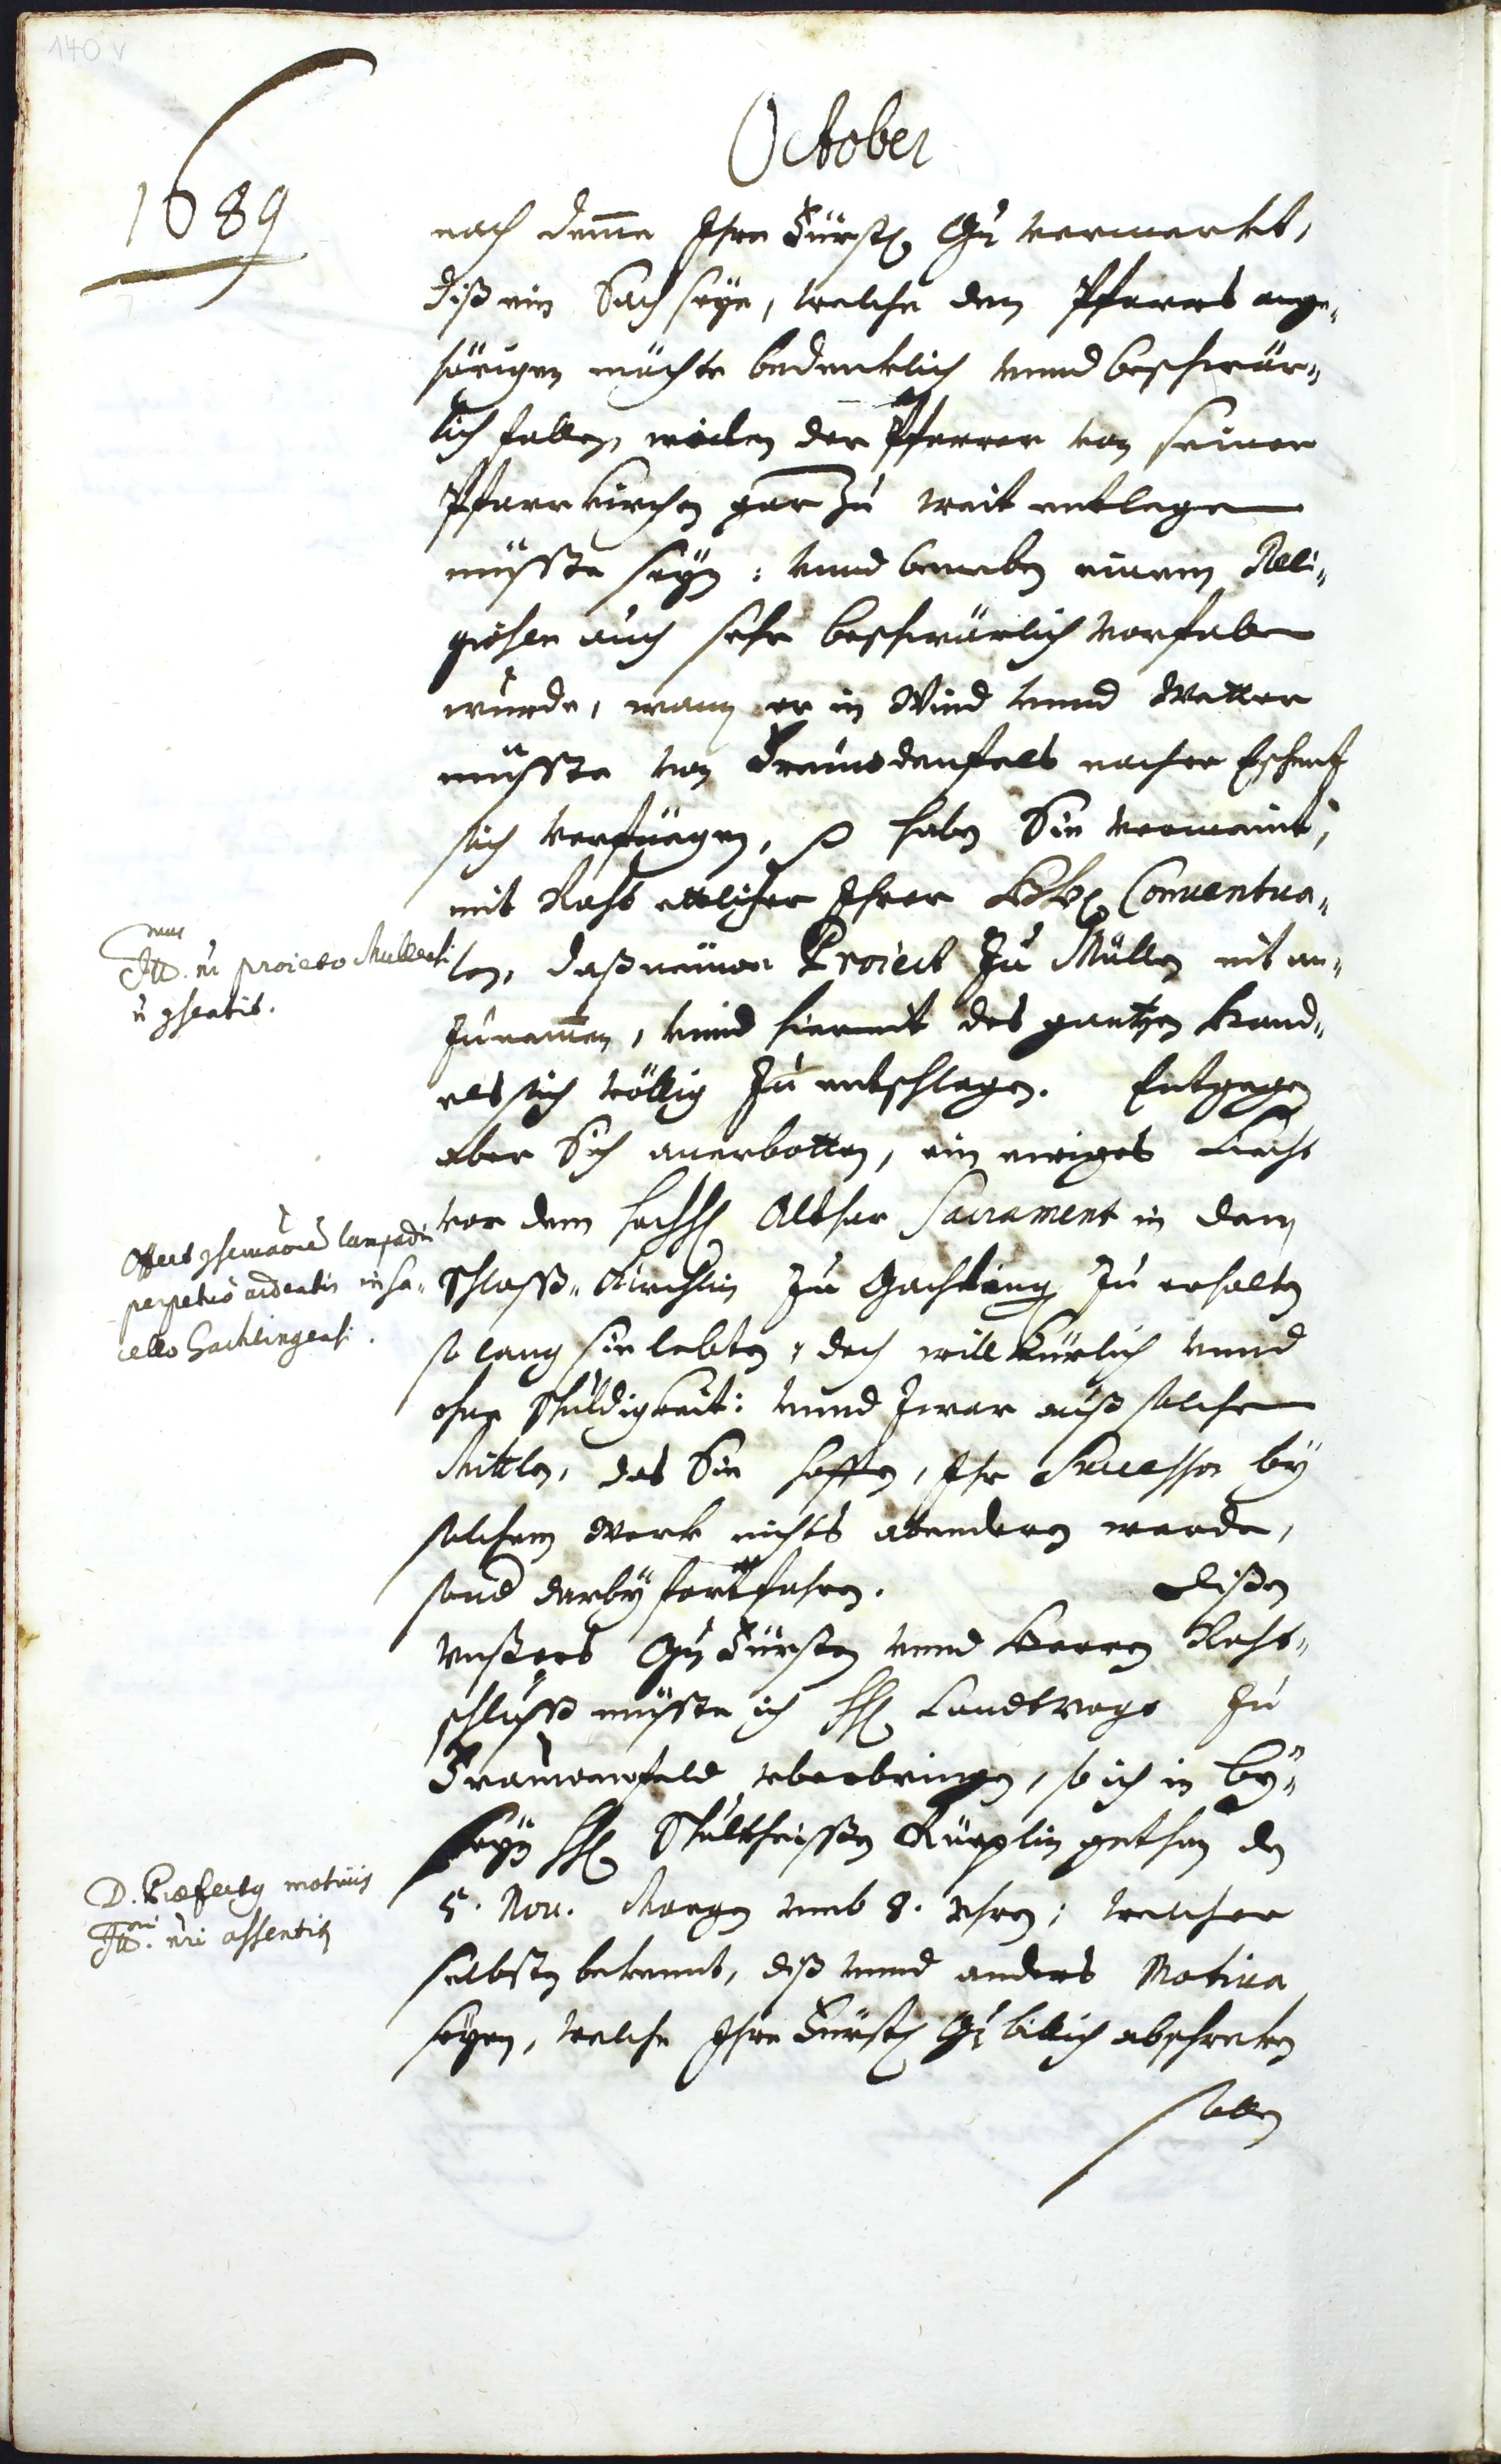 140 v
1689
October
nach deme Ihre Fürstl. Gn. vermerkt,
diß ein Sach seye, welche den Pfarrs ange„
hörigen möchte bedencklich vnnd beschwär„
lich fallen, weilen der Pfarrer von seiner
Pfarrkirchen gar zu weit entlegen
müsste seyn: vnnd beneben einem Reli„
giosen auch sehr beschwärlich vorfallen
wurde, wann er in Wind vnnd Wetter
müsste von Freudenfels nacher Eschentz
sich verfüegen, so haben Sie vermeint,
mit Raht etlicher Ihrer Conventua„
len, das neüwe Proiect zu Müllen nit an„
zunemmen, vnnd hiermit des gantzen Hand„
els sich völlig zu entschlagen. Entgegen
aber Sich anerbotten, ein ewiges Liecht
vor dem hochhl. Althar Sacrament in dem
Schloss-Kirchlin zu Gachlang zu erhalten
so lang sie lebten, doch willkürlich vnnd
ohne Schuldigkeit: vnnd zwar auß solchen
Mittlen, das Sie hoffen, Ihr Successor by
solchem Werk nichts abenderen werde,
sond darby fortfahren. Dißen
vnßers Gn. Fürsten vnnd Herren Raht„
schluss müsste ich Hl. Landtvogt zu
Frauwenfeld vberbringen, so ich in by„
seyn Hl. Schultheissen Rüeplin gethan den
5. Nov. Morgen vmb 8. Vhren; welcher
selbsten bekennt, diß vnnd anders Motiva
seyen, welche Ihre Fürstl. Gn. billich abschrecken
sollen
Ill.mus nr. proiecto Mullensi
n̄ gsentit.
Offert gservatione lampadis
perpetuo ardentis in sa„
cello Gachlingensi.
D. Præfectus motivis
Ill.mi nri assentit